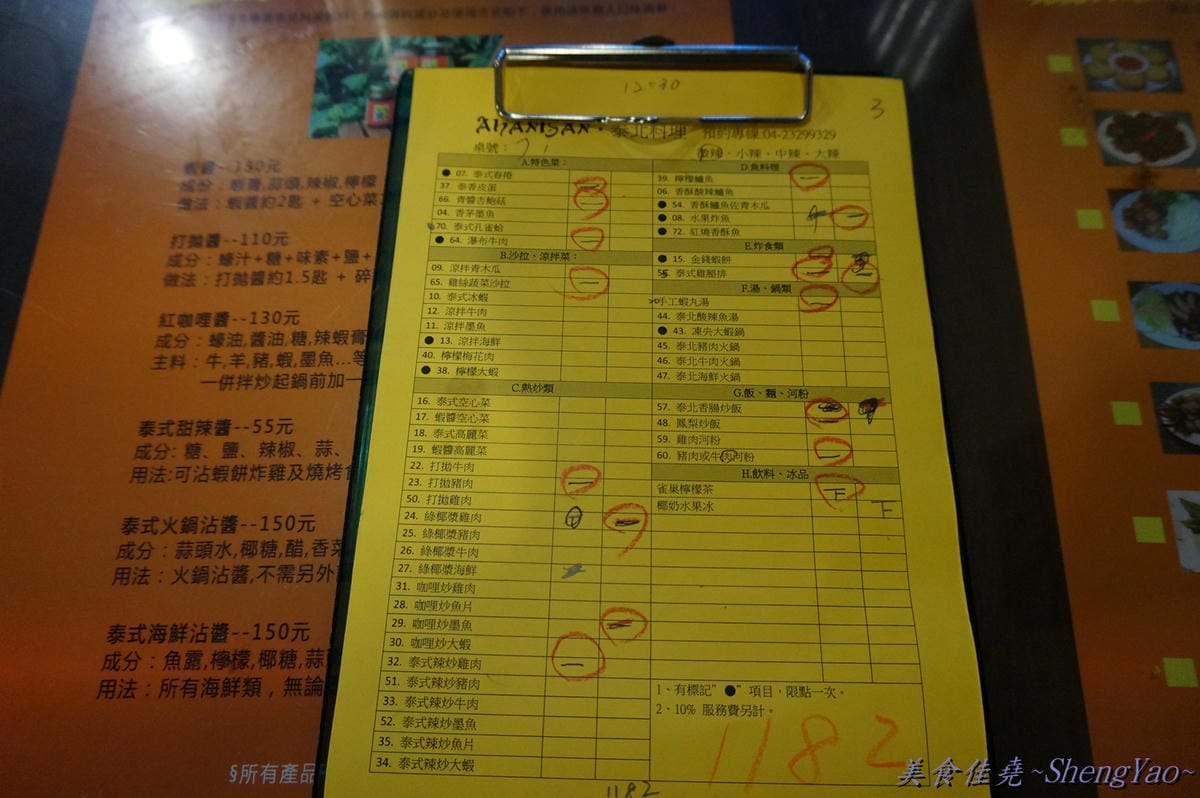 12:30
3
AHANISAN · 泰北料理 預約專線:04-23299329
桌號：
微辣、小辣、中辣、大辣
A.特色菜：
● 07. 泰式春捲
37. 泰香皮蛋
66. 青醬杏鮑菇
04. 香茅墨魚
70. 泰式孔雀蛤
● 64. 瀑布牛肉
B.沙拉、涼拌菜：
09. 涼拌青木瓜
65. 雞絲蔬菜沙拉
10. 泰式冰蝦
12. 涼拌牛肉
11. 涼拌墨魚
● 13. 涼拌海鮮
40. 檸檬梅花肉
● 38. 檸檬大蝦
C.熱炒類
16. 泰式空心菜
17. 蝦醬空心菜
18. 泰式高麗菜
19. 蝦醬高麗菜
22. 打拋牛肉
23. 打拋豬肉
50. 打拋雞肉
24. 綠椰漿雞肉
25. 綠椰漿豬肉
26. 綠椰漿牛肉
27. 綠椰漿海鮮
31. 咖哩炒雞肉
28. 咖哩炒魚片
29. 咖哩炒墨魚
30. 咖哩炒大蝦
32. 泰式辣炒雞肉
51. 泰式辣炒豬肉
33. 泰式辣炒牛肉
52. 泰式辣炒墨魚
35. 泰式辣炒魚片
34. 泰式辣炒大蝦
D.魚料理
39. 檸檬鱸魚
06. 香酥酸辣鱸魚
● 54. 香酥鱸魚佐青木瓜
● 08. 水果炸魚
● 72. 紅燒香酥魚
E.炸食類
● 15. 金錢蝦餅
泰式雞腿排
F.湯、鍋類
手工蝦丸湯
44. 泰北酸辣魚湯
● 43. 凍央大蝦鍋
45. 泰北豬肉火鍋
46. 泰北牛肉火鍋
47. 泰北海鮮火鍋
G.飯、麵、河粉
57. 泰北香腸炒飯
48. 鳳梨炒飯
59. 雞肉河粉
60. 豬肉或牛肉河粉
H.飲料、冰品
雀巢檸檬茶
椰奶水果冰
1、有標記"●"項目，限點一次。
2、10% 服務費另計。
1182
1182
蝦醬--130元
成份：蝦醬,蒜頭,辣椒,檸檬
做法：蝦醬約2匙 + 空心菜
打拋醬--110元
成份：蠔汁+糖+味素+鹽+
做法：打拋醬約1.5匙 + 碎
紅咖哩醬--130元
成份：蠔油,醬油,糖,辣蝦膏
主料：牛,羊,豬,蝦,墨魚...等
一併拌炒起鍋前加一
泰式甜辣醬--55元
成分:糖、鹽、辣椒、蒜、
用法:可沾蝦餅炸雞及燒烤食
泰式火鍋沾醬--150元
成分：蒜頭水,椰糖,醋,香菜
用法：火鍋沾醬,不需另外
泰式海鮮沾醬--150元
成分：魚露,檸檬,椰糖,蒜
用法：所有海鮮類，無論
§所有產品
美食佳堯~ShengYao~